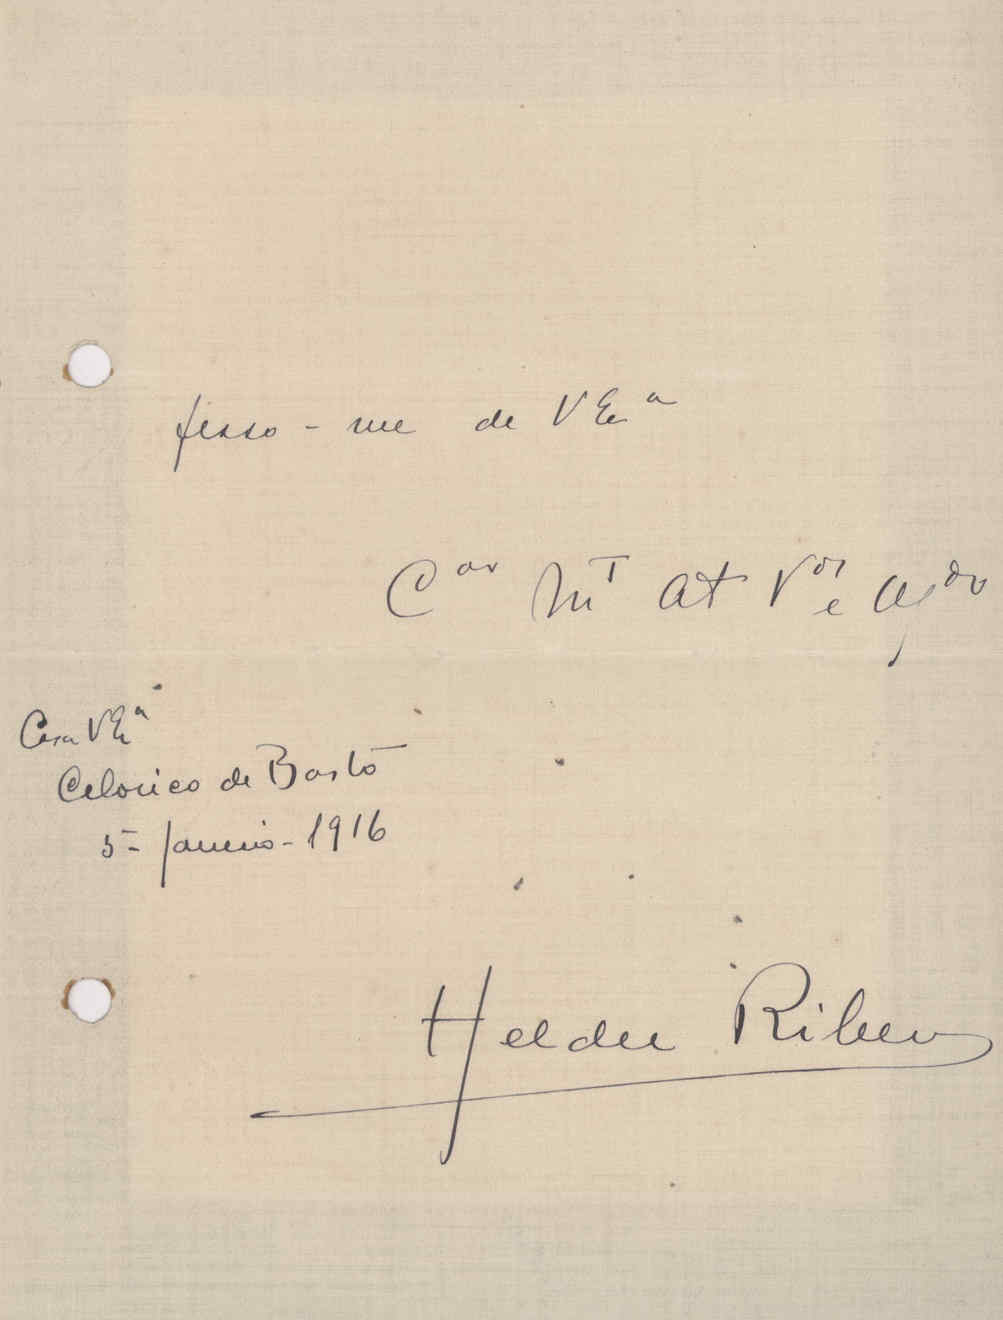 fesso-me de V Exa
Cor Mt At Vor e Agdo
Casa V Exa
Celorico de Basto
5- Janeiro - 1916
Helder Ribeiro